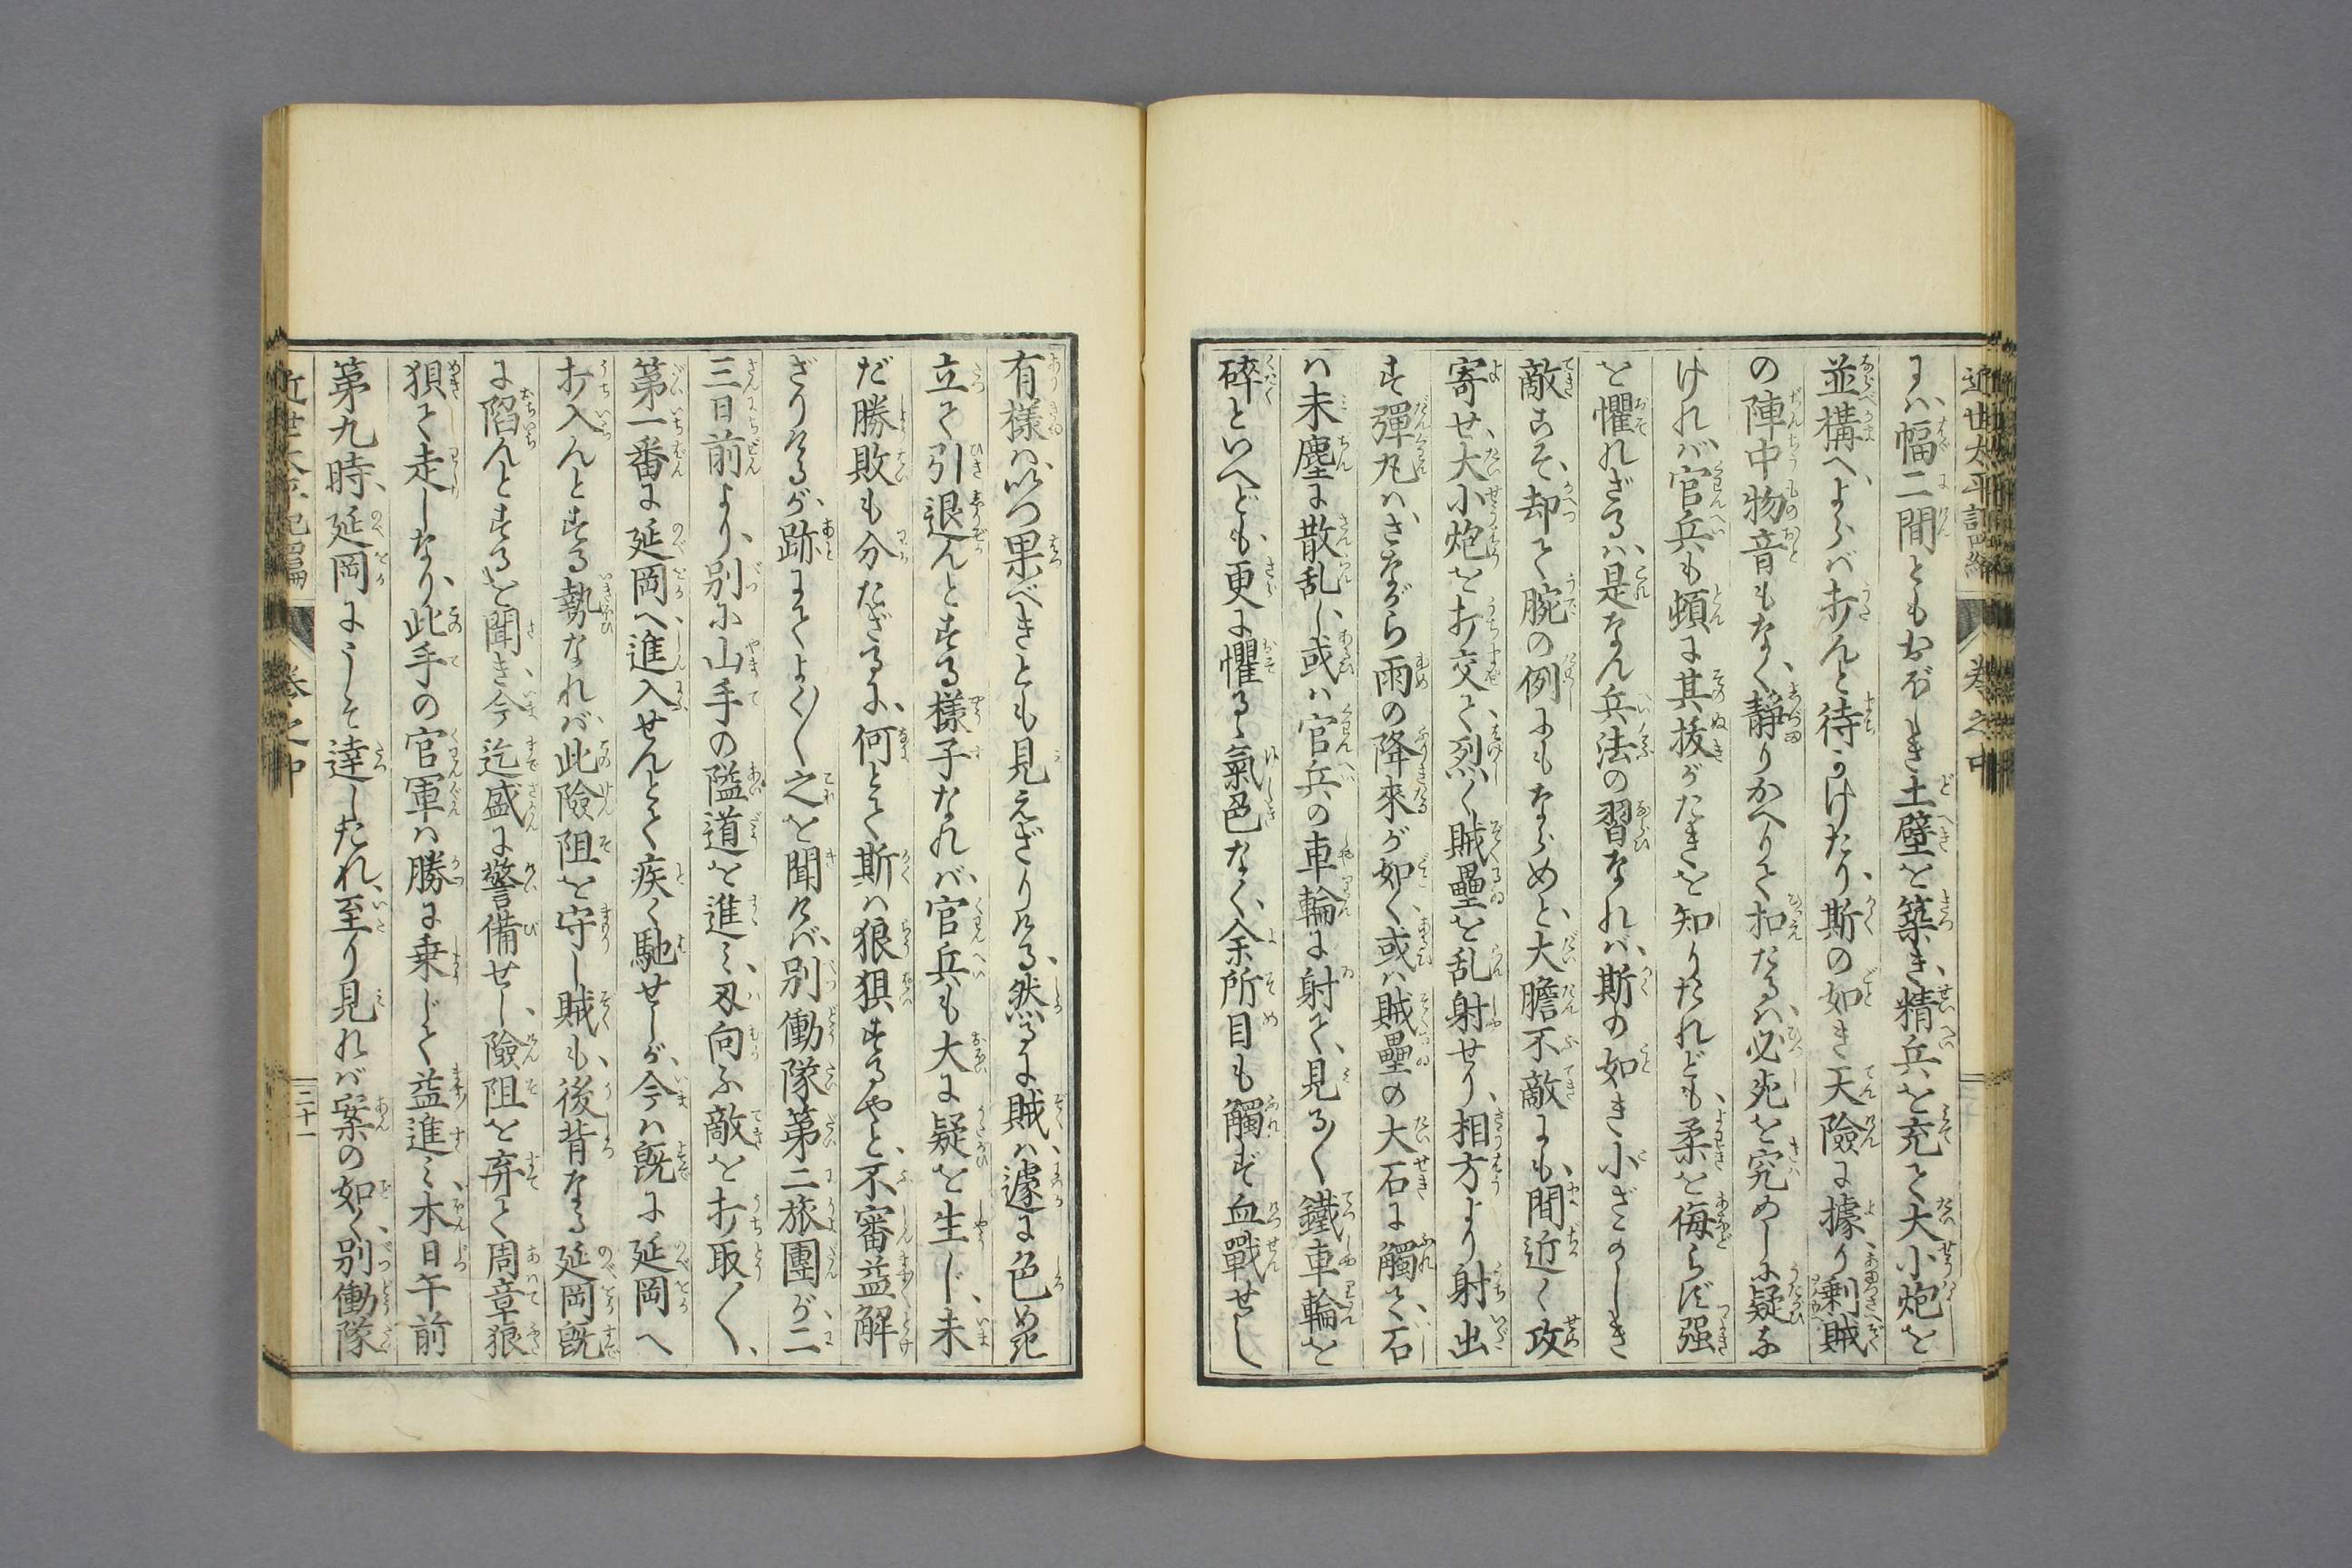 近世太平記
卷之中
にハ幅二間ともおぼしき土壁を築き、精兵を充て大小炮を
並構へ、よらバ打んと待うけたり、斯の如き天險に據り剰賊
の陣中物音もなく、靜りかへりて扣たるハ必死を究めしに疑な
けれバ、官兵も頓に其抜がたきを知りたれども、柔を侮らず强
を懼れざるハ、是なん兵法の習なれバ、斯の如き小ざかしき
敵こそ、却て腕の例にもならめと、大膽不敵にも、間近く攻
寄せ、大小炮を打交て、烈く賊壘を乱射せり、相方より射出
す彈丸ハ、さながら雨の降來が如く、或ハ賊壘の大石に觸て、石
ハ未塵に散乱し、或ハ官兵の車輪に射て、見る〱鐵車輪を
碎といへども、更に懼るゝ氣色なく、余所目も觸ず血戰せし
有樣ハ、いつ果べきとも見えざりける、然るに賊ハ遽に色め死
立て引退んとする樣子なれバ、官兵も大に疑を生じ、未
だ勝敗も分たざるに、何とて斯ハ狼狽するやと、不審益解
ざりけるが、跡にてよく〱之を聞けバ、別働隊第二旅團が、二
三日前より、別に山手の隘道を進ミ、刄向ふ敵を打取〱、
第一番に延岡へ進入せんとて疾く馳せしが、今ハ既に延岡へ
打入んとする勢なれバ、此險阻を守し賊も、後背なる延岡既
に陷んとするを聞き、今迄盛に警備せし、險阻を弃て周章狼
狽て走しなり、此手の官軍ハ勝に乗じて益進ミ、本日午前
第九時、延岡にこそ達したれ、至り見れバ案の如く、別働隊
卷之中
三十一